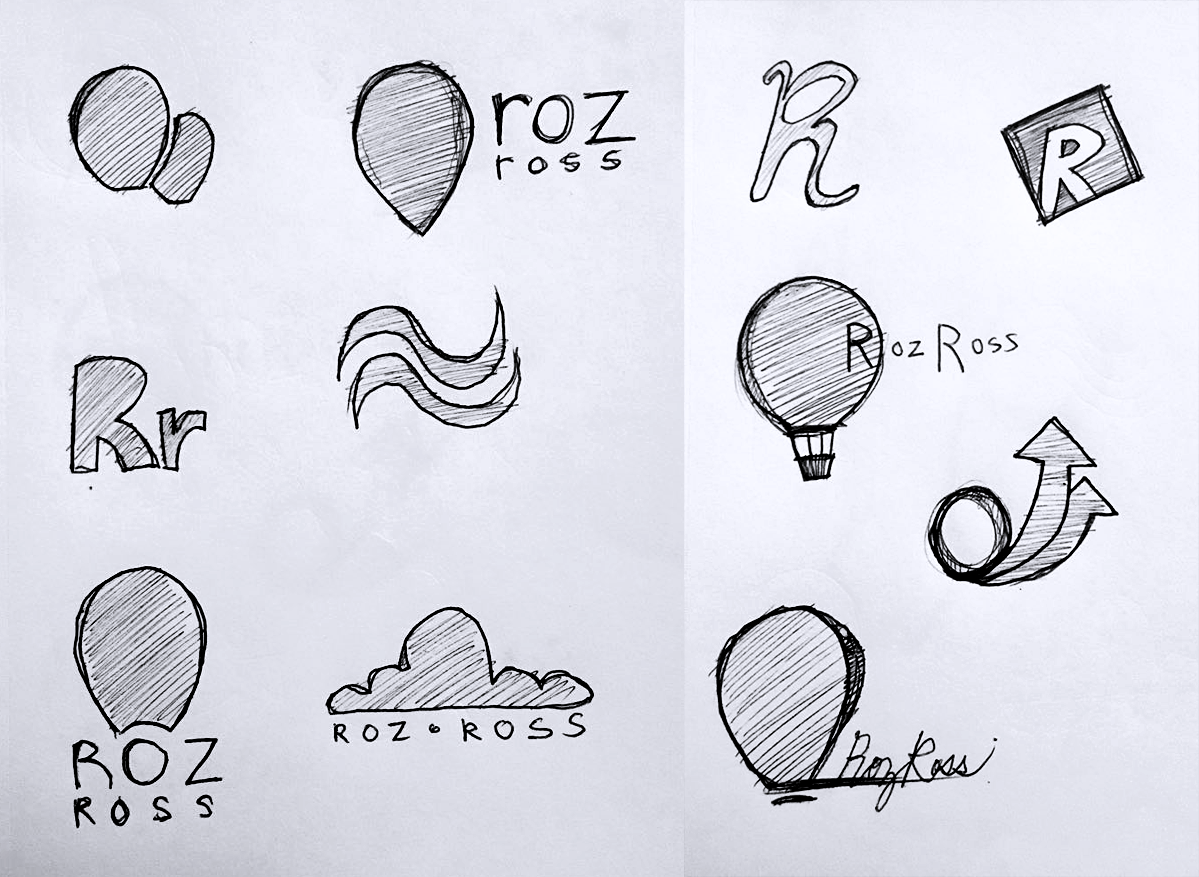 roz
ross
Rr
ROZ
ROSS
ROZ • ROSS
R
R
Roz Ross
Roz Ross